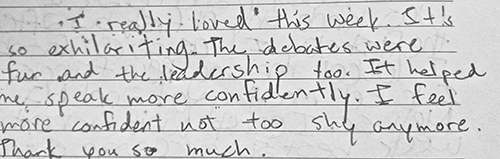 I really loved this week. It's
so exhilariting. The debates were
fun and the leadership too. It helped
me speak more confidently. I feel
more confident not too shy anymore.
Thank you so much.